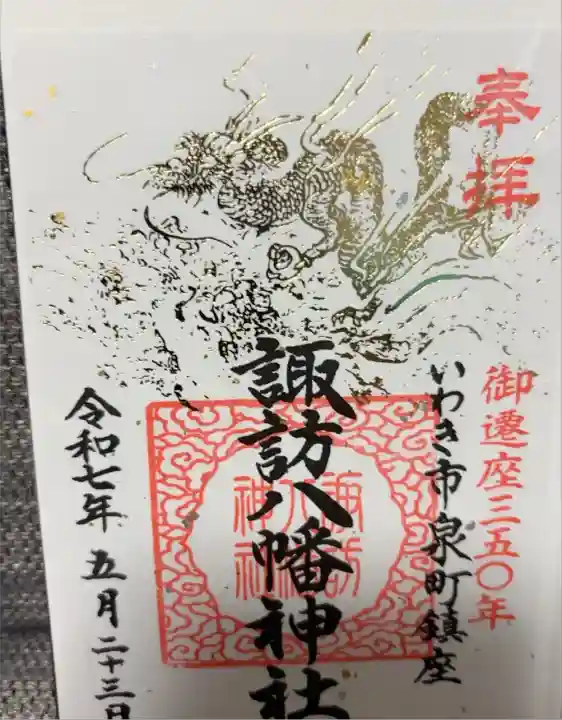 奉拝
御遷座三五〇年
いわき市泉町鎮座
諏訪八幡神社
諏訪八幡神社
令和七年五月二十三日